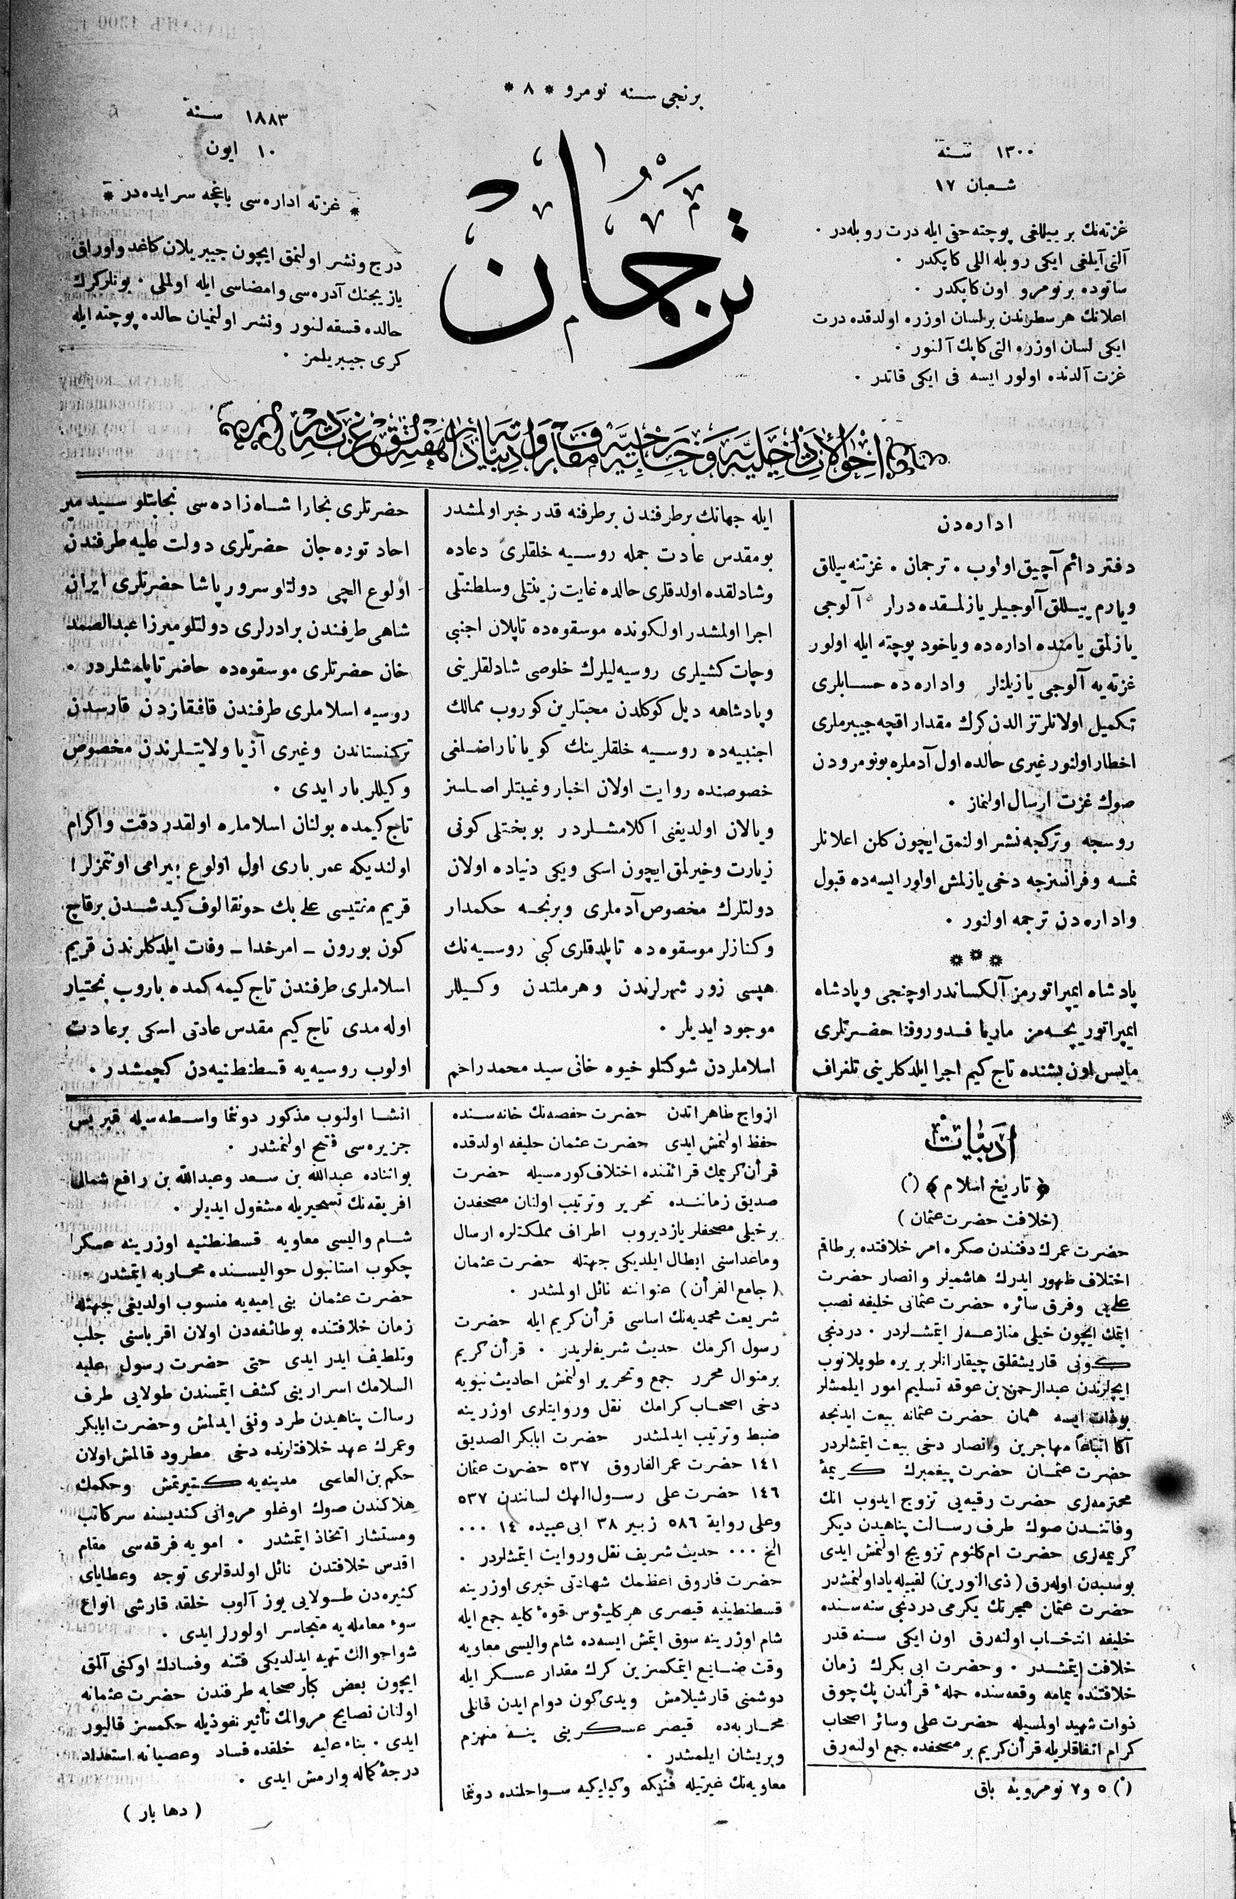 برنجی سنه نومرو * ٨ *
١٣٠٠ سنة
شعبان ١٧
غزتەنك بر ييللغی پوچته حقی ايله درت روبلەدر ٠
آلتی آيلغی ايكی روبله اللی كاپكدر ٠
ساتوده بر نومرو اون كاپكدر ٠
اعلانك هر سطرندن بر لسان اوزره اولدقده درت
ايكی لسان اوزره التی كاپك آلنور ٠
غزت آلدنده اولور ايسه فی ايكی قاتدر ٠
ترجمان
١٨٨٣ سنة
١٠ ايون
* غزته اداره‌سی باغچه سرايده‌در *
درج ونشر اولنمق ايچون جيبريلان كاغد واوراق
يازيجنك آدره‌سی وامضاسی ايله اولملی ٠ بونلر كرك
حالده قسقه‌لنور ونشر اولنميان حالده پوچته ايله
كری جيبريلمز ٠
اداره‌دن
دفتر دائم آچيق اولوب ٠ ترجمان ٠ غزتنه ييللق
ويارم ييللق آلوجيلر يازلمقده‌درلر آلوجی
يازلمق يامنده اداره‌ده وياخود پوچته ايله اولور
غزته‌يه آلوجی يازيلنلر واداره‌ده حسابلری
تكميل اولانلر تز الدن كرك مقدار اقچه جيبرملری
اخطار اولنور غيری حالده اول آدملره بو نومرودن
صوك غزت ارسال اولنماز ٠
روسجه وتركجه نشر اولنمق ايچون كلن اعلانلر
نمسه وفرانسزجه دخی يازلمش اولور ايسه‌ده قبول
واداره‌دن ترجمه اولنور ٠
* * *
پادشاه ايمپراتورمز آلكساندر اوچنجی وپادشاه
ايمپراتوريچه‌مز ماريا فدوروفنا حضرتلری
مايس اون بشنده تاج كيم اجرا ايلدكلرينی تلغراف
ايله جهانك بر طرفندن بر طرفنه قدر خبر اولمشدر
بو مقدس عادت جمله روسيه خلقلری دعاده
وشادلقده اولدقلری حالده غايت زينتلی وسلطنتلی
اجرا اولمشدر اولكونده موسقوه‌ده تاپلان اجنبی
وچات كشيلری روسيه‌ليلرك خلوصی شادلقلرينی
وپادشاهه ديل كوكلدن محبتلرين كوروب ممالك
اجنبيه‌ده روسيه خلقلرينك كويا ناراضلغی
خصوصنده روايت اولان اخبار وغيبتلر اصلسز
ويالان اولديغنی اكلامشلردر بو بختلی كونی
زيارت وخيرلمق ايچون اسكی ويكی دنياده اولان
دولتلرك مخصوص آدملری وبرنجه حكمدار
وكنازلر موسقوه‌ده تاپلدقلری كبی روسيه‌نك
هپسی زور شهرلرندن وهر ملتدن وكيللر
موجود ايديلر ٠
اسلاملردن شوكتلو خيوه خانی سيد محمد راحم
حضرتلری بخارا شاه‌زاده‌سی نجابتلو سيد مير
احاد توره‌جان حضرتلری دولت عليه طرفندن
اولوع الچی دولتلو سرور پاشا حضرتلری ايران
شاهی طرفندن برادرلری دولتلو ميرزا عبدالصمد
خان حضرتلری موسقوه‌ده حاضر تاپلمشلردر ٠
روسيه اسلاملری طرفندن قافقازدن قارسدن
تركستاندن وغيری آزيا ولايتلرندن مخصوص
وكيللر بار ايدی ٠
تاج كيمده بولنان اسلاملره اولقدر دقت واكرام
اولنديكه عمر باری اول اولوع بيرامی اونتمزلر!
قريم مفتيسی علی بك حونقالوف كيدشدن بر قاچ
كون بورون ـ امر خدا ـ وفات ايلدكلرندن قريم
اسلاملری طرفندن تاج كيمه كمده باروب بختيار
اوله‌مدی تاج كيم مقدس عادتی اسكی بر عادت
اولوب روسيه‌يه قسطنطنيه‌دن كچمشدر ٠
ادبيات
﴿ تاريخ اسلام ﴾ (*)
(خلافت حضرت عثمان)
حضرت عمرك دفنندن صكره امر خلافتده بر طاقم
اختلاف ظهور ايدرك هاشميلر وانصار حضرت
علی‌يی وفرق سائره حضرت عثمانی خليفه نصب
ايتمك ايچون خيلی منازعه‌لر ايتمشلردر ٠ دردنجی
كونی قاريشقلق چيقارانلر بر يره طوپلانوب
ايچلرندن عبدالرحمن بن عوفه تسليم امور ايلمشلر
بو ذات ايسه همان حضرت عثمانه بيعت ايدنجه
آكا اتباعا مهاجرين وانصار دخی بيعت ايتمشلردر
حضرت عثمان حضرت پيغمبرك كريمۀ
محترمه‌لری حضرت رقيه‌يی تزوج ايدوب انك
وفاتندن صوك طرف رسالت پناهيدن ديكر
كريمه‌لری حضرت ام كلثوم تزويج اولنمش ايدی
بو سببدن اوله‌رق (ذی النورين) لقبيله ياد اولنمشدر
حضرت عثمان هجرتك يكرمی دردنجی سنه سنده
خليفه انتخاب اولنه‌رق اون ايكی سنه قدر
خلافت ايتمشدر ٠ وحضرت ابی بكرك زمان
خلافتنده يمامه وقعه‌سنده حملۀ قرأندن پك چوق
ذوات شهيد اولمسيله حضرت علی وسائر اصحاب
كرام اتفاقلريله قرأن كريم بر مصحفده جمع اولنه‌رق
(*) ٥ و ٧ نومرويه باق
ازواج طاهراتدن حضرت حفصه‌نك خانه‌سنده
حفظ اولنمش ايدی حضرت عثمان خليفه اولدقده
قرأن كريمك قرائتنده اختلاف كورمسيله حضرت
صديق زماننده تحرير وترتيب اولنان مصحفدن
بر خيلی مصحفلر يازديروب اطراف مملكتلره ارسال
وماعداسنی ابطال ايلديكی جهتله حضرت عثمان
(جامع القرأن) عنواننه نائل اولمشدر ٠
شريعت محمديه‌نك اساسی قرأن كريم ايله حضرت
رسول اكرمك حديث شريفلريدر ٠ قرأن كريم
بر منوال محرر جمع وتحرير اولنمش احاديث نبويه
دخی اصحاب كرامك نقل وروايتلری اوزرينه
ضبط وترتيب ايدلمشدر حضرت ابابكر الصديق
١٤١ حضرت عمر الفاروق ٥٣٧ حضرت عثمان
١٤٦ حضرت علی رسول الهك لسانندن ٥٣٧
وعلی رواية ٥٨٦ زبير ٣٨ ابی عبيده ١٤ ٠٠٠
الخ ٠٠٠ حديث شريف نقل وروايت ايتمشلردر ٠
حضرت فاروق اعظمك شهادتی خبری اوزرينه
قسطنطينيه قيصری هركليئوس قوۀ كليه جمع ايله
شام اوزرينه سوق ايتمش ايسه‌ده شام واليسی معاويه
وقت ضايع ايتمكسزين كرك مقدار عسكر ايله
دوشمنی قارشيلامش ويدی كون دوام ايدن قانلی
محاربه‌ده قيصر عسكرينی ينه منهزم
وپريشان ايلمشدر ٠
معاويه‌نك غيرتيله فنيكه وكيليكيه سواحلنده دونما
انشا اولنوب مذكور دونما واسطه‌سيله قبريس
جزيره‌سی فتح اولنمشدر ٠
بو اثناده عبدالله بن سعد وعبدالله بن رافع شمال
افريقه‌نك تسخيريله مشغول ايديلر ٠
شام واليسی معاويه قسطنطنيه اوزرينه عسكر
چكوب استانبول حواليسنده محاربه ايتمشدر ٠
حضرت عثمان بنی اميه‌يه منسوب اولديغی جهتله
زمان خلافتنده بو طائفه‌دن اولان اقرباسنی جلب
وتلطيف ايدر ايدی حتی حضرت رسول عليه
السلامك اسرارينی كشف ايتمسندن طولايی طرف
رسالت پناهيدن طرد ونفی ايدلمش وحضرت ابابكر
وعمرك عهد خلافتلرنده دخی مطرود قالمش اولان
حكم بن العاصی مدينه‌يه كتيرتمش وحكمك
هلاكندن صوك اوغلو مروانی كنديسنه سركاتب
ومستشار اتخاذ ايتمشدر ٠ امويه فرقه‌سی مقام
اقدس خلافتدن نائل اولدقلری توجه وعطايای
كثيره‌دن طولايی يوز آلوب خلقه قارشی انواع
سوء معامله‌يه متجاسر اولورلر ايدی ٠
شو احوالك تهيه ايدلديكی فتنه وفسادك اوكنی آلمق
ايچون بعض كبار صحابه طرفندن حضرت عثمانه
اولنان نصايح مروانك تأثير نفوذيله حكمسز قاليور
ايدی ٠ بناء عليه خلقده فساد وعصيانه استعداد
درجۀ كماله وارمش ايدی ٠
(دها بار)